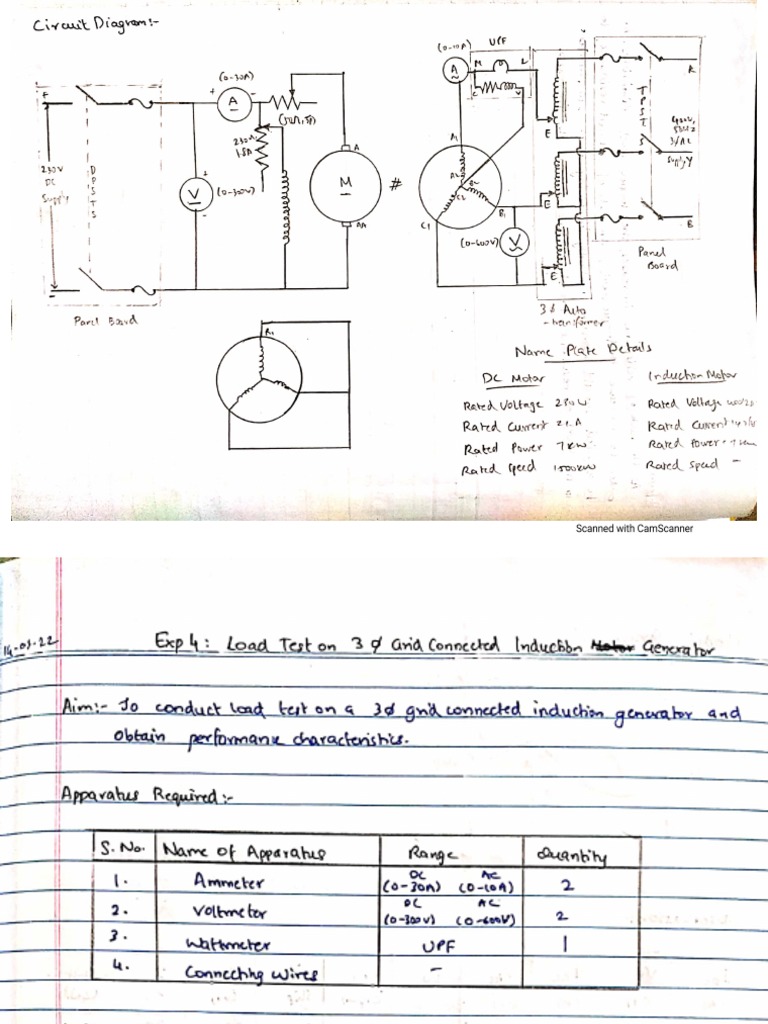 Circuit Diagram:-
(0-30A)
+ A -
(50Ω, 5A)
230Ω
1.8A
230V
DC
Supply
DPSTS
+
V
-
(0-300V)
A
M
AA
#
Panel Board
(0-10A)
A
UPF
M L
C V
A1
A2
B2
C2
B1
C1
(0-600V)
V
E
E
E
TPSTS
R
400V,
50Hz
3/AC
Supply
B
Panel
Board
3ϕ Auto
-transformer
R1
Name Plate Details
DC Motor Induction Motor
Rated Voltage Rated Voltage
Rated Current Rated Current
Rated Power 7kw Rated Power
Rated Speed 1500kw Rated Speed -
Scanned with CamScanner
14-03-22
Exp 4: Load Test on 3 ϕ Grid Connected Induction Motor Generator
Aim:- To conduct load test on a 3ϕ grid connected induction generator and
obtain performance characteristics.
Apparatus Required:-
S. No. Name of Apparatus Range Quantity
1. Ammeter DC (0-30A) AC (0-10A) 2
2. Voltmeter DC (0-300V) AC (0-600V) 2
3. Wattmeter UPF 1
4. Connecting Wires -